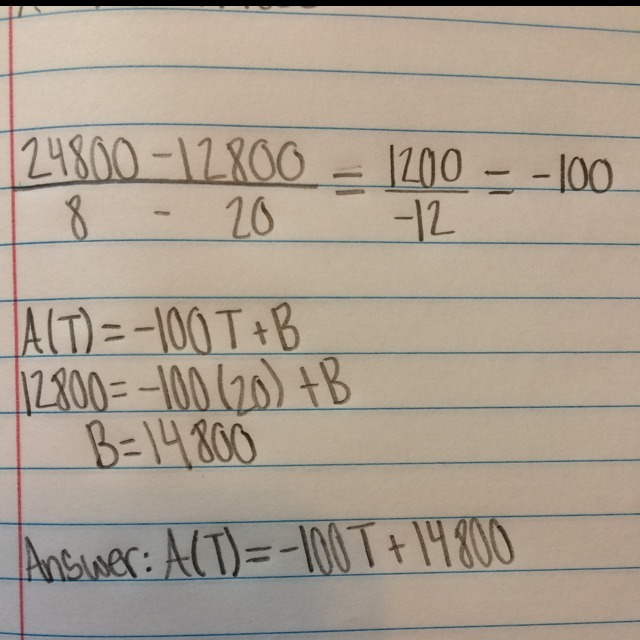 24800 - 12800 = 1200 = -100
8 - 20 -12
A(T) = -100T + B
12800 = -100(20) + B
B = 14800
Answer: A(T) = -100T + 14800